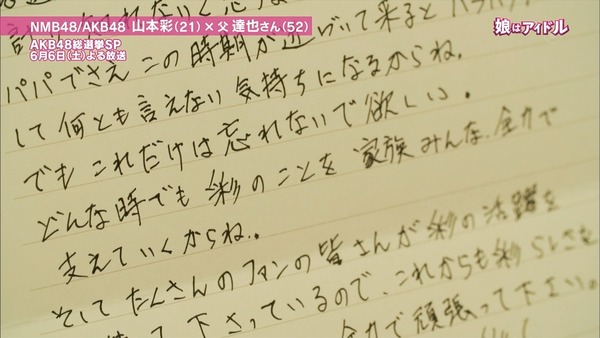 NMB48/AKB48 山本彩(21)×父 達也さん(52)
AKB48総選挙SP
6月6日(土)よる放送
娘はアイドル
パパでさえ この時期が近づいて来ると
して 何とも言えない 気持ちになるからね。
でも これだけは忘れないで欲しい。
どんな時でも 彩のことを 家族みんな、全力で
支えていくからね。
そして たくさんのファンの皆さんが彩の活躍を
て 下さっているので、これからも彩らしさを
全力で頑張って下さい。